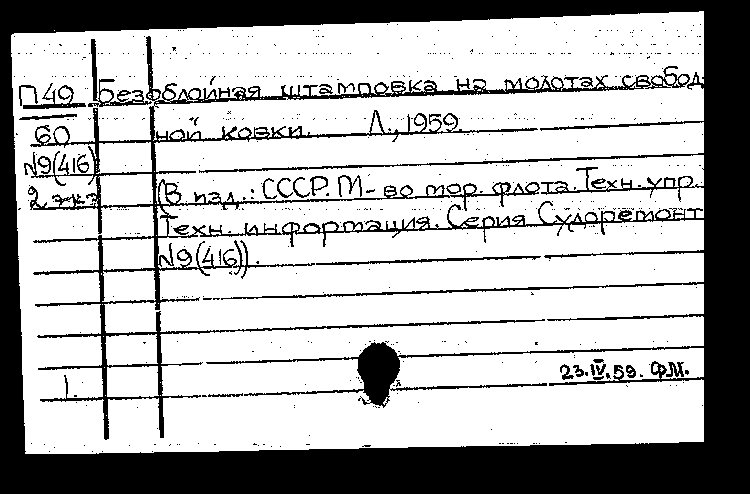 П49 Безоблойная штамповка на молотах свобод-
60 ной ковки. Л., 1959.
№9(416)
2 экз (В изд.: СССР. М-во мор. флота. Техн. упр.
Техн. информация. Серия Судоремонт
№9(416)).
1. 23.IV.59. Ф.М.